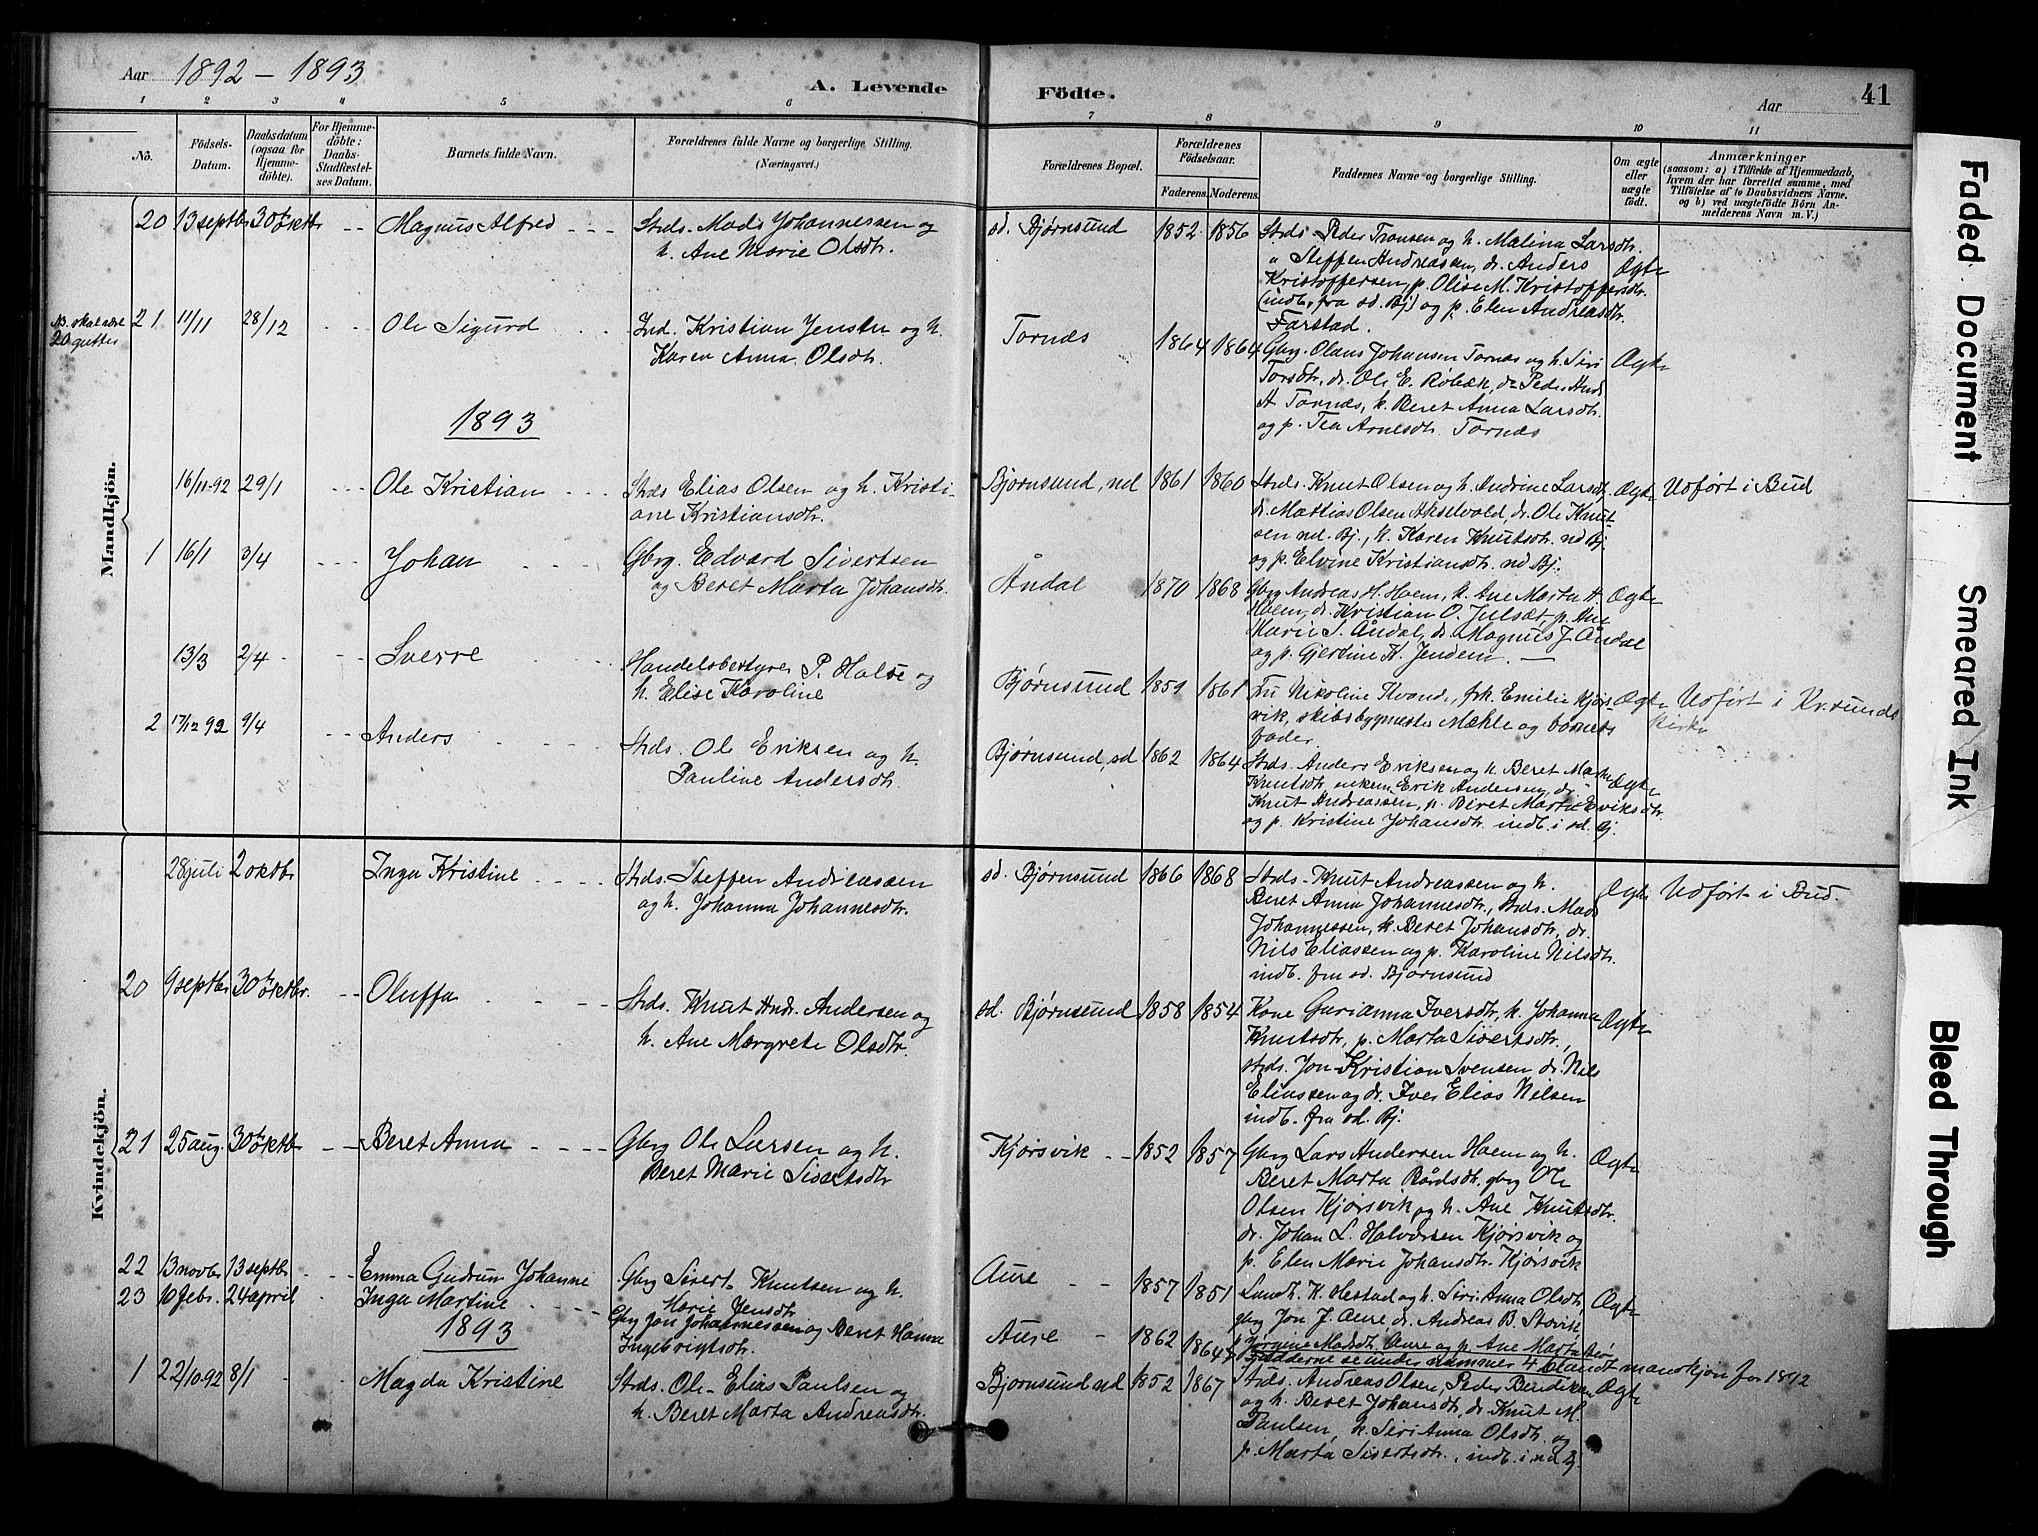 Aar 1892 - 1893
A. Levende Födte.
Aar
41
1 2 3 4 5 6 7 8 9 10 11
No.
Födsels-Datum.
Daabsdatum (ogsaa for Hjemme-döbte).
For Hjemme-döbte: Daabs-Stadfæstel-ses Datum.
Barnets fulde Navn.
Forældrenes fulde Navne og borgerlige Stilling.
(Næringsvei.)
Forældrenes Bopæl.
Forældrenes Födselsaar.
Faderens. Moderens.
Faddernes Navne og borgerlige Stilling.
Om ægte eller uægte födt.
Anmærkninger
(saasom: a) i Tilfælde af Hjemmedaab, hvem der har forrettet samme, med Tilföielse af to Daabsvidners Navne. og b) ved uægtefödte Börn An-melderens Navn m. V.)
Mandkjön.
20 13 septbr 30 oktbr - - Magnus Alfred - - -
Strds. Mads Johannessen og
h. Ane Marie Olsdtr.
sd. Bjørnsund 1852 1856
Strds. Peder Transen og h. Malina Larsdtr.
" Steffen Andreassen, dr. Anders
Kristoffersen, p. Olise M. Kristoffersdtr.
(indb. fra sd. Bj) og p. Elen Andreasdtr.
Farstad.
Ægte
NB. skal være
20 gutter
21 11/11 28/12 Ole Sigurd
Ind. Kristian Jensen og h.
Karen Anna Olsdtr.
Tornæs 1864 1864
Gbrg. Olaus Johansen Tornæs og h. Siri
Torsdtr, dr. Ole E. Røbæk, dr. Peder And.
A Tornæs, k. Beret Anna Larsdtr.
og p. Tea Arnesdtr. Tornæs
Ægte
1893
16/11-92 29/1 - - - Ole Kristian - - -
Strds Elias Olsen og h. Kristi-
ane Kristiansdtr.
Bjørnsund, nd 1861 1860
Strds. Knut Olsen og h. Andrine Larsdtr.
dr. Mattias Olsen Haselvold, dr. Ole Knut-
sen nd. Bj., k. Karen Knutsdtr. nd Bj.
og p. Elvine Kristiansdtr. nd Bj.
Ægte Udført i Bud
1 16/1 3/4 - - - Johan - - - -
Gbrg. Edvard Sivertsen
og Beret Marta Johansdtr.
Åndal 1870 1868
Gbrg Andreas H. Hoem, k. Ane Marta A
Hoem, dr. Kristian O. Julsæt, p. Ane
Marie S. Åndal, dr. Magnus J. Åndal
og p. Gjertine K. Jendem. —
Ægte
13/3 2/4 - - - Sverre - - -
Handelsbestyrer P. Halse og
h. Elise Karoline
Bjørnsund 1859 1861
Fru Nikoline Kvand, frk. Emilie Kjørs
vik, skibsbygmester Mæhle og barnets
fader.
Ægte Udført i Kr.sunds
kirke
2 17/12 92 9/4 - - Anders - - - -
Strds. Ole Eriksen og h.
Pauline Andersdtr.
Bjørnsund, sd 1862 1864
Strds. Anders Eriksen og h. Beret Marta
Knutsdtr, enkem. Erik Andersen, dr.
Knut Andreassen, p. Beret Marta Eriksdtr.
og p. Kristine Johansdtr. indb. i sd. Bj.
Ægte
Kvindekjön.
28 juli 2 oktbr Inga Kristine - - - -
Strds. Steffen Andreassen
og h. Johanna Johannesdtr.
sd. Bjørnsund 1866 1868
Strds. Knut Andreassen og h.
Beret Anna Johannesdtr., strds. Mads
Johannessen, k. Beret Johansdtr, dr.
Nils Eliassen og p. Karoline Nilsdtr.
indb. fra sd. Bjørnsund
Ægte Udført i Bud.
20 9 septbr 30 oktbr. - - Oluffa - - - -
Strds. Knut And. Andersen og
h. Ane Margrete Olsdtr.
sd. Bjørnsund 1858 1854
Kone Gurianna Iversdtr, k. Johanna
Knutsdtr, p. Marta Sivertsdtr.,
strds. Jon Kristian Svensen dr. Nils
Eliassen og dr. Iver Elias Nilsen
indb. fra sd. Bj.
Ægte
21 25 aug. 30 oktb - - Beret Anna - - - -
Gbrg Ole Larsen og h.
Beret Marie Sivertsdtr
Kjørsvik - - 1852 1857
Gbrg Lars Andersen Hoem og h.
Beret Marta Bårdsdtr. gbrg Ole
Olsen Kjørsvik og h. Ane Knutsdtr.
dr. Johan L. Halvorsen Kjørsvik og
p. Elen Marie Johansdtr. Kjørsvik
Ægte
22 13 novbr 13 septbr - - Emma Gudrun Johanne
Gbrg Sivert Knutsen og h.
Marie Jensdtr
Aure - - 1857 1851
Landh. K. Hestad og h. Siri Anna Olsdtr,
gbrg Jon J. Aure dr. Andreas B Storvik
Jørgine Madsdtr. Aure og p. Ane Marta
Ægte
23 10 febr. 24 april - Inga Martine - - - -
Gbrg Jon Johannessen og Beret Hanna
Ingebrigtsdtr.
Aure - 1862 1864
Fadderne se under nummer 4 blandt mandkjøn for 1892
1893
1 22/10-92 8/1 - - Magda Kristine
Strds. Ole Elias Paulsen og
h. Beret Marta Andreasdtr.
Bjørnsund nd 1852 1867
Strds. Andreas Olsen, Peder Bendiksen
og h. Beret Johansdtr, dr Knut M.
Paulsen, k. Siri Anna Olsdtr og
p. Marta Sivertsdtr., indb. i nd Bj.
Ægte
Faded Document
Smeared Ink
Bleed Through